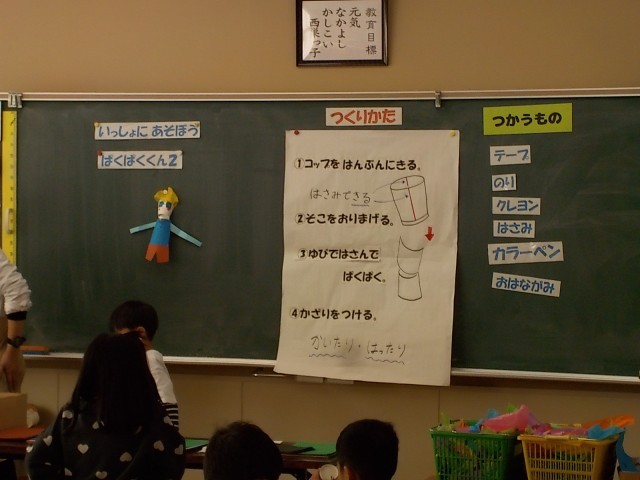 教育目標
元気
なかよし
かしこい
いっしょに あそぼう
ぱくぱくくん2
つくりかた
①コップを はんぶんにきる。
はさみできる
②そこをおりまげる。
③ゆびではさんで
ぱくぱく。
④かざりをつける。
かいたり・はったり
つかうもの
テープ
のり
クレヨン
はさみ
カラーペン
おはながみ